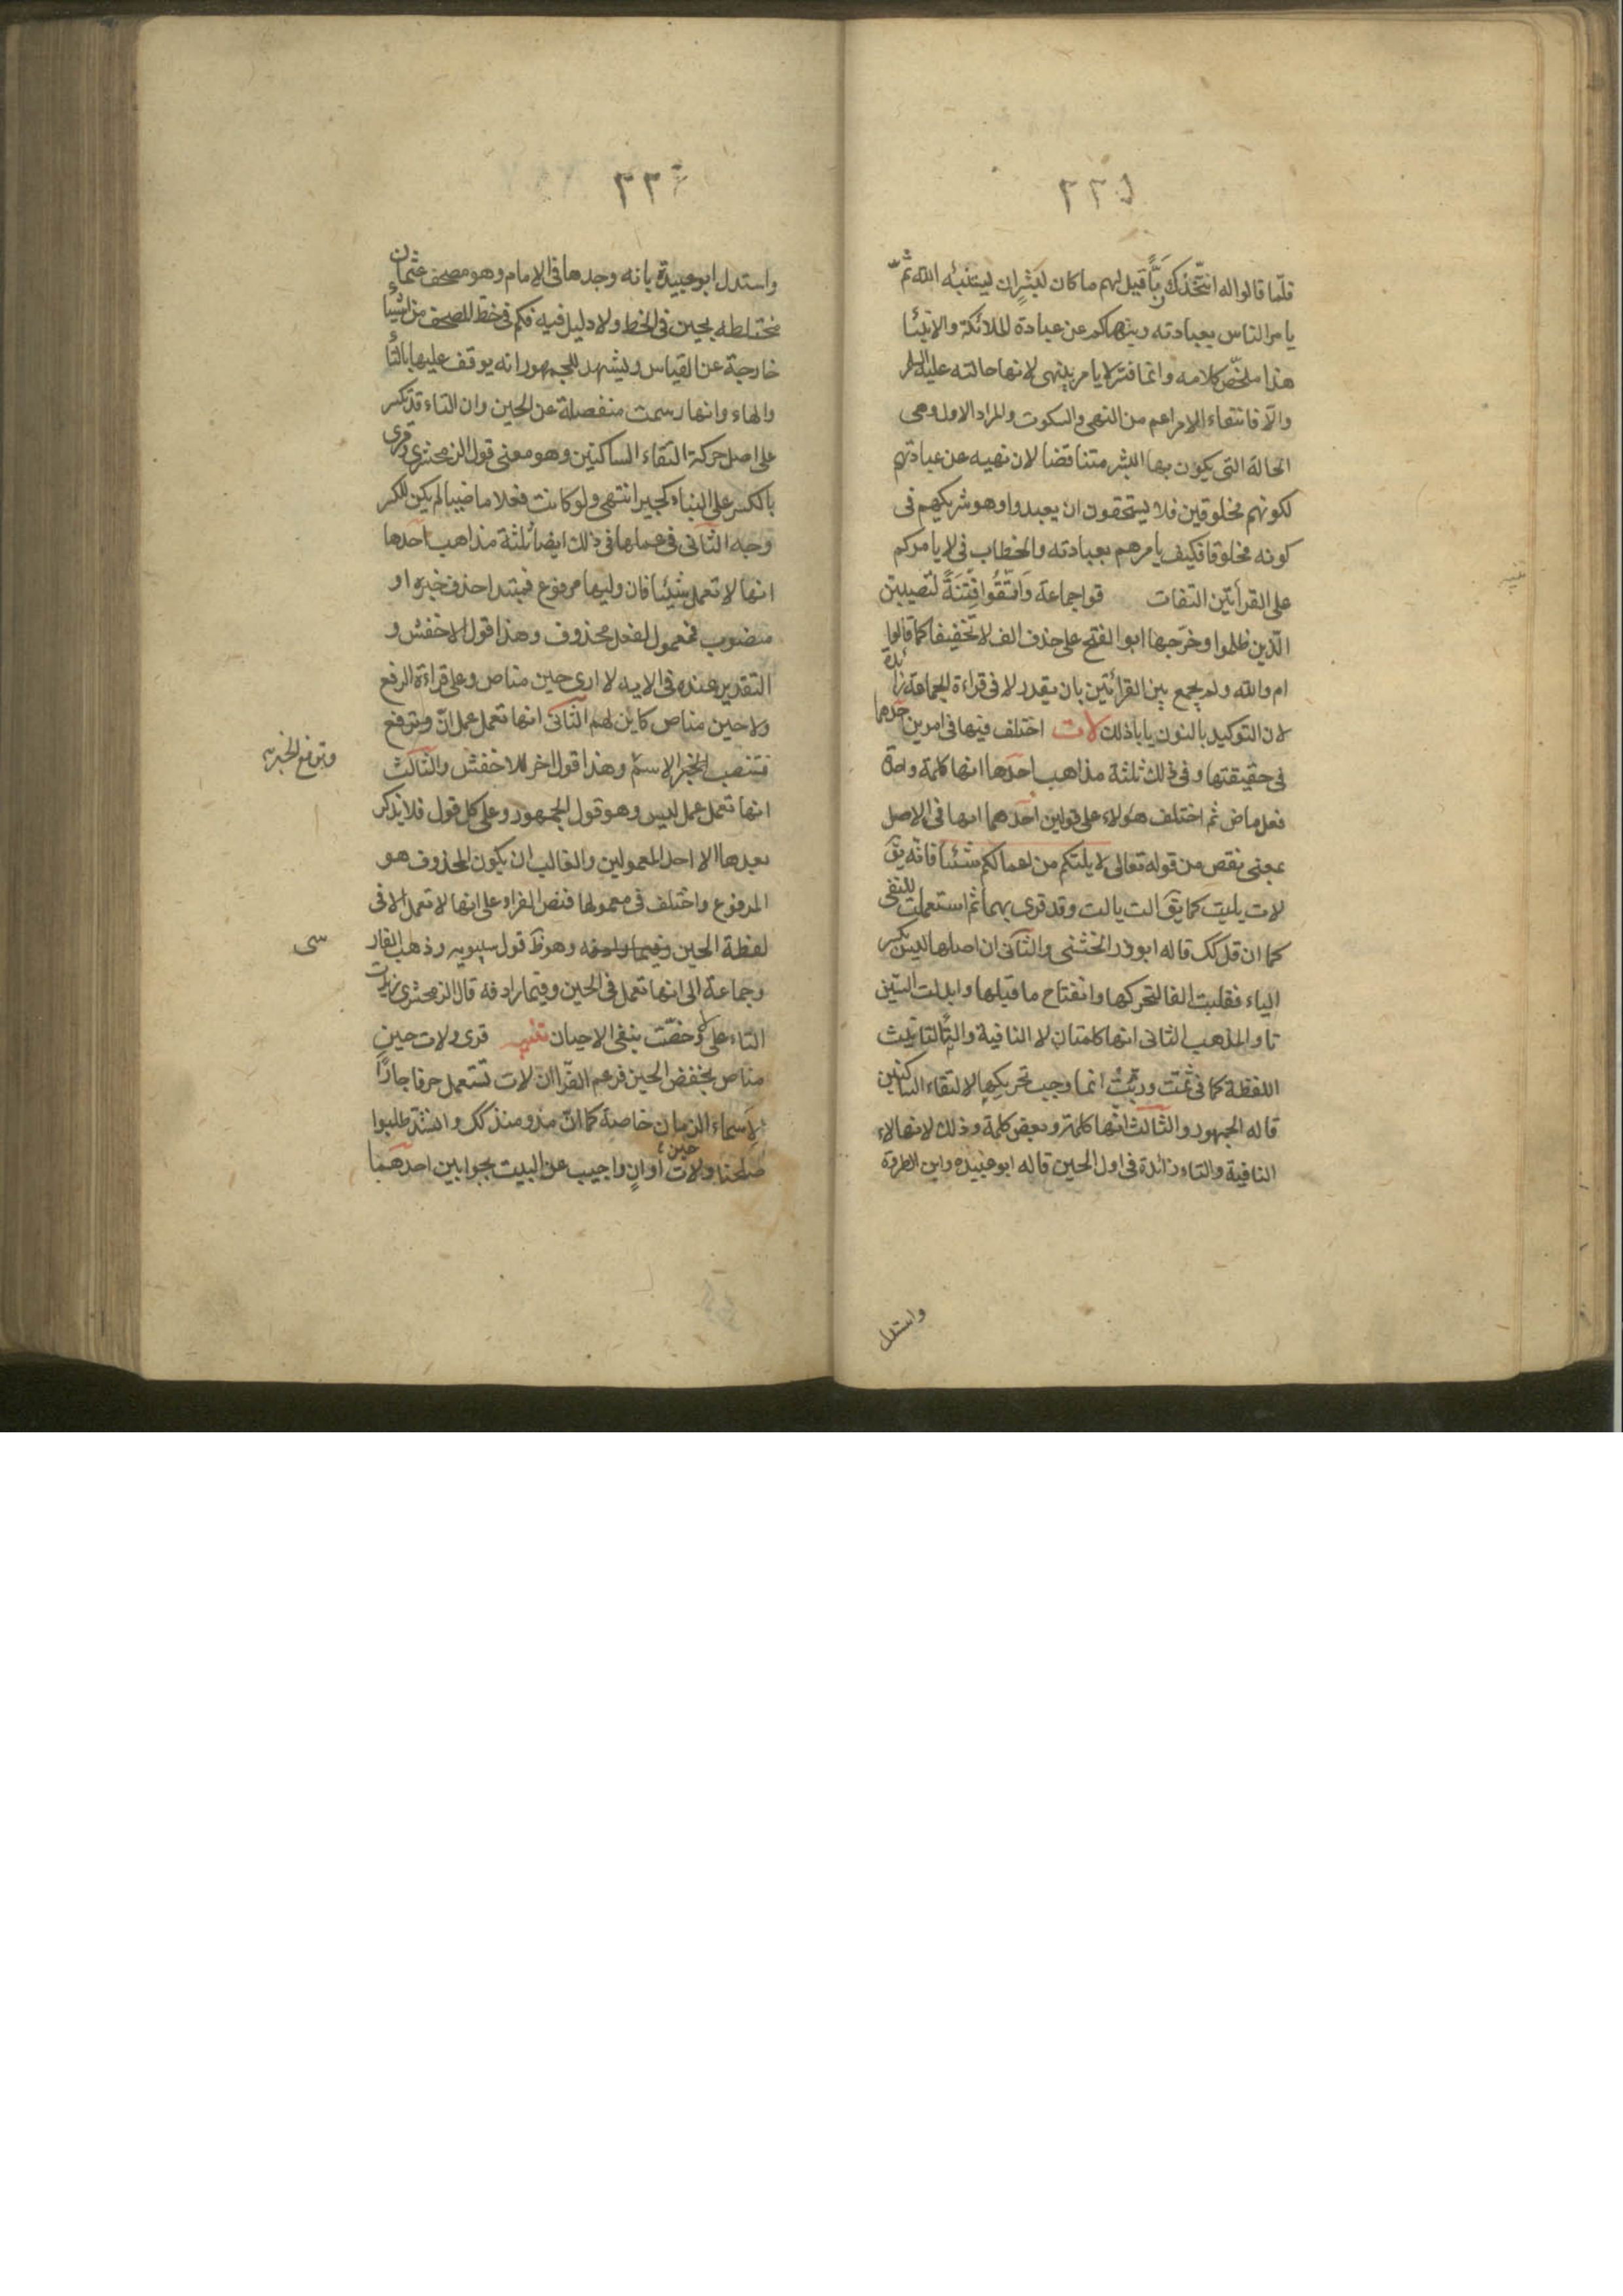 ٢٢٥
فلمّا قالوا له انتّخذك ربًّا قيل لهم ما كان لبشرٍ ان ليستنبئه الله ثمّ
يامر الناس بعبادته وينهاكم عن عبادة الملائكة والانبيا
هذا ملخّص كلامه وانما فسّر لا يامر بينهى لانها حالته عليه السلم
والّا فانتفاء الامر اعم من النهى والسكوت والمراد الاول وهى
الحالة التى يكون بها البشر متناقضا لان نهيه عن عبادتهم
لكونهم مخلوقين فلا يستحقون ان يعبدوا وهو شريكهم فى
كونه مخلوقا فكيف يامرهم بعبادته والخطاب فى لا يامركم
على القرأتين التفات قوا جماعة وَاتّقُوا فِتنَةً لتصيبن
الّذين ظلموا وخرّجها ابو الفتح على حذف الف لا تخفيفا كما قالوا
ام والله ولم يجمع بين القرائتين بان يقدر لا فى قراءة الجماعة زائدة
لان التوكيد بالنون ياباذلك لات اختلف فيها فى امرين احدهما
فى حقيقتها وفى ذلك ثلثة مذاهب احدها انها كلمة واحدة
فعل ماض ثم اختلف هؤلاء على قولين احدهما انها فى الاصل
بمعنى نقص من قوله تعالى لا يلتكم من اعمالكم شئيا فانه يق
لات يليت كما يق الت يالت وقد قرى بهما ثم استعملت للنفى
كما ان قل كك قاله ابو ذر الخشنى والثانى ان اصلها ليس بكسر
الياء فقلبت الفا لتحركها وانفتاح ما قبلها وابدلت السّين
تا والمذهب الثانى انها كلمتان لا النافية والتّا لتانيث
اللفظة كما فى ثمّت وربّتُ انما وجب تحريكها لالتقاء الساكنين
قاله الجمهور والثالث انها كلمة وبعض كلمة وذلك لانها لاء
النافية والتاء زائدة فى اول الحين قاله ابو عبيده وابن الطروة
واستدل
٢٢٦
واستدل ابو عبيدة بانه وجدها فى الامام وهو مصحف عثمان
مختلطه بحين فى الخط ولا دليل فيه فكم فى خطّ المصحف من اشياء
خارجة عن القياس ويشهد للجمهور انه يوقف عليها بالتّاء
والهاء وانها رسمت منفصلة عن الحين وان التاء قد تكسر
على اصل حركة التقاء الساكنين وهو معنى قول الزمخشرى وقرى
بالكسر على البناء كجير انتهى ولو كانت فعلا ماضيا لم يكن للكسر
وجه الثّانى فى عملها فى ذلك ايضا ثلثة مذاهب احدها
انها لا تعمل شيئا فان وليها مرفوع فمبتدا حذف خبره او
منصوب فمعمول لفعل محذوف وهذا قول الاخفش و
التقدير عنده فى الايه لا ارى حين مناص وعلى قراءة الرفع
ولا حين مناص كاين لهم الثّانى انها تعمل عمل انّ وترفع
فتنصب الخبر الاسم وهذا قول اخر للاخفش والثّالث
وترفع الخبر
انها تعمل عمل ليس وهو قول الجمهور وعلى كل قول فلا يذكر
بعدها الا احد المعمولين والغالب ان يكون المحذوف هو
المرفوع واختلف فى معمولها فنص الفراء على انها لا تعمل الا فى
لفظة الحين وفيما رادفه وهو ظ قول سيبويه وذهب الفار
سى
وجماعة الى انها تعمل فى الحين وفيما رادفه قال الزمخشرى زيدت
التاء على لا وخصّت بنفى الاحيان تنبيه قرى ولات حينِ
مناص بخفض الحين فزعم الفرّا ان لات تستعمل حرفا جارًّا
لاسماء الزمان خاصة كما انّ مذ ومنذ كك وانشد طلبوا
صلحنا ولات أوانٍ واجيب عن البيت بجوابين احدهما
حين